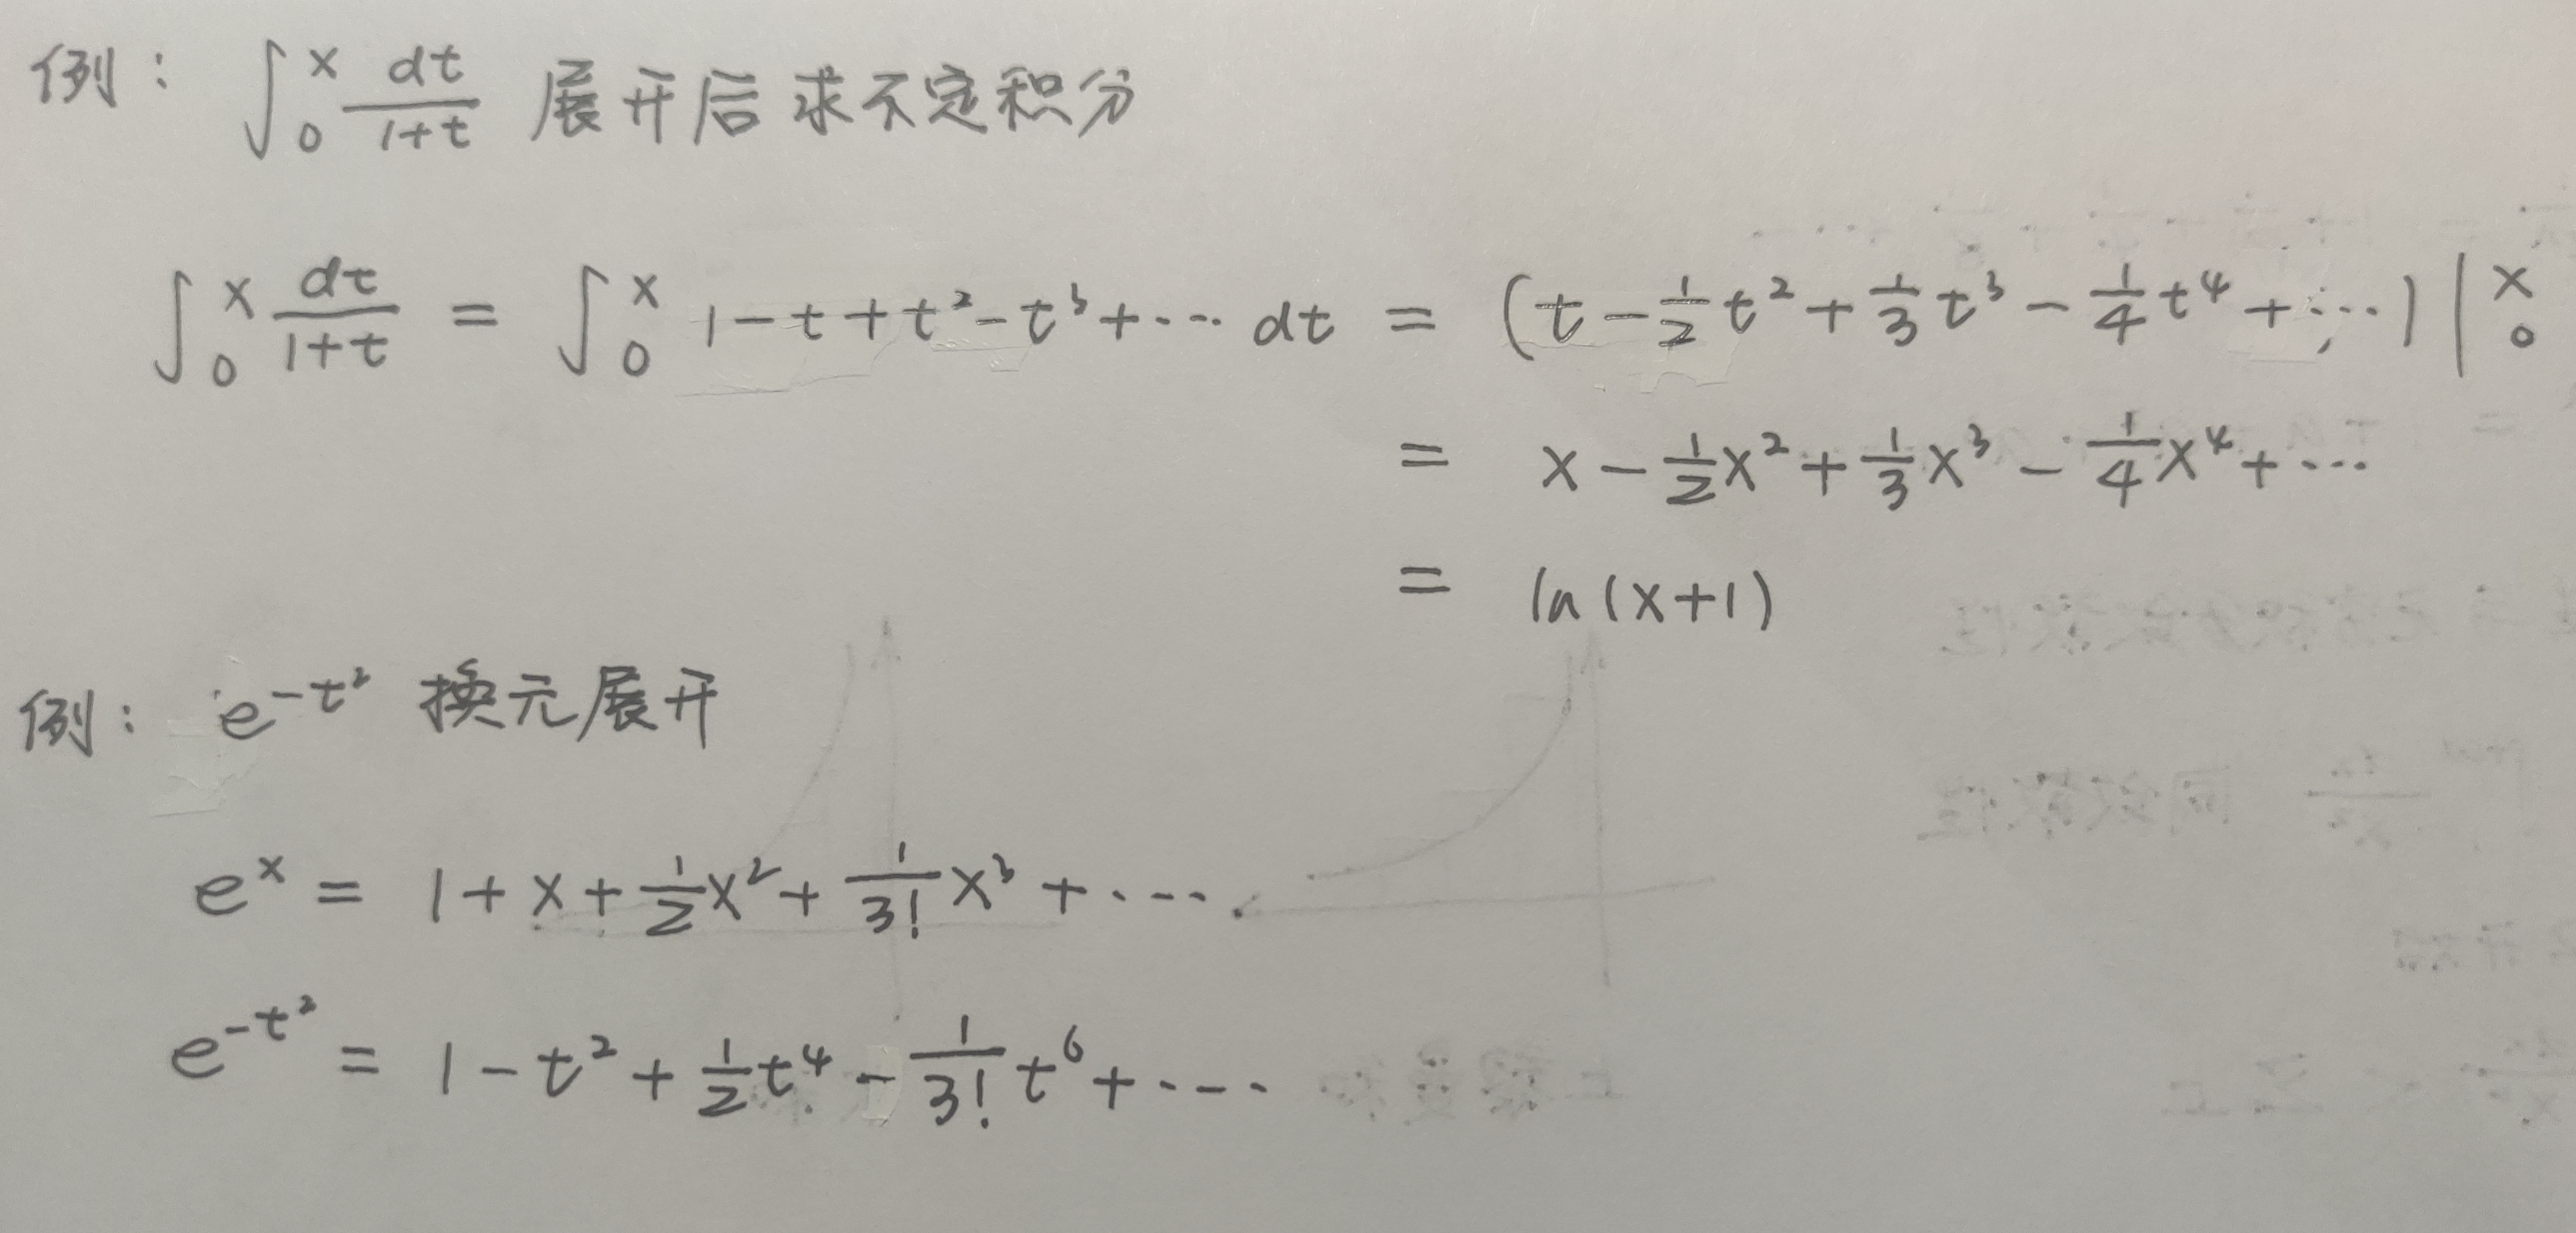 例： ∫₀ˣ dt/(1+t) 展开后求不定积分
∫₀ˣ dt/(1+t) = ∫₀ˣ 1-t+t²-t³+⋯ dt = (t-½t²+⅓t³-¼t⁴+⋯)|₀ˣ
= x-½x²+⅓x³-¼x⁴+⋯
= ln(x+1)
例： e^(-t²) 换元展开
eˣ = 1+x+½x²+1/3! x³+⋯
e^(-t²) = 1-t²+½t⁴-1/3! t⁶+⋯